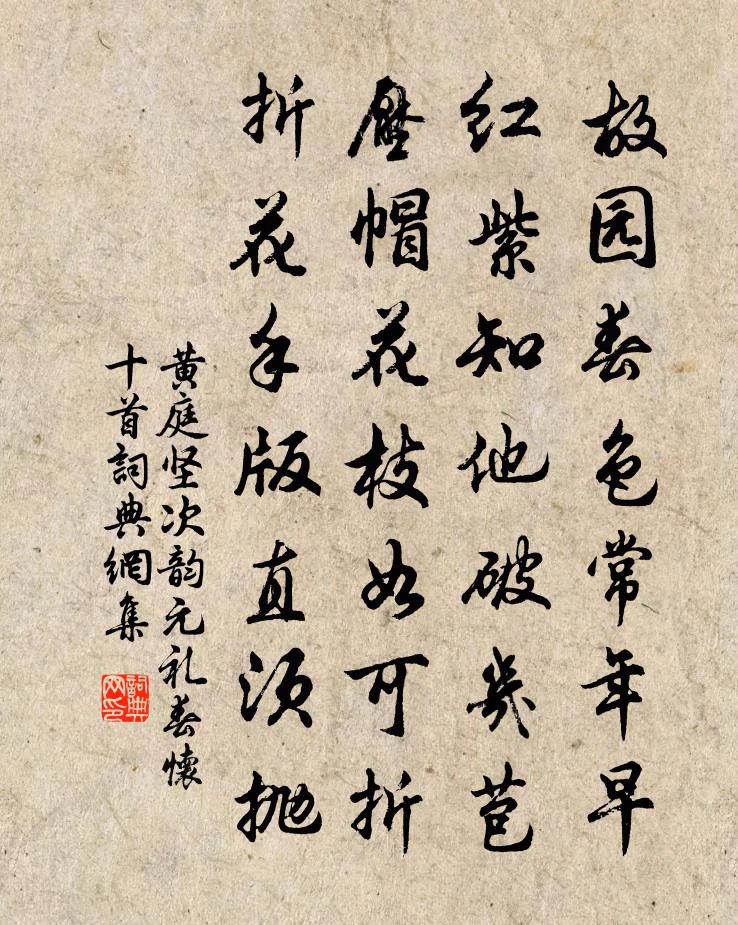 故园春色常年早
红紫知他破幾苞
壓帽花枝如可折
折花手版直须抛
黄庭坚次韵元礼春懷
十首詞典網集
詞典
网印